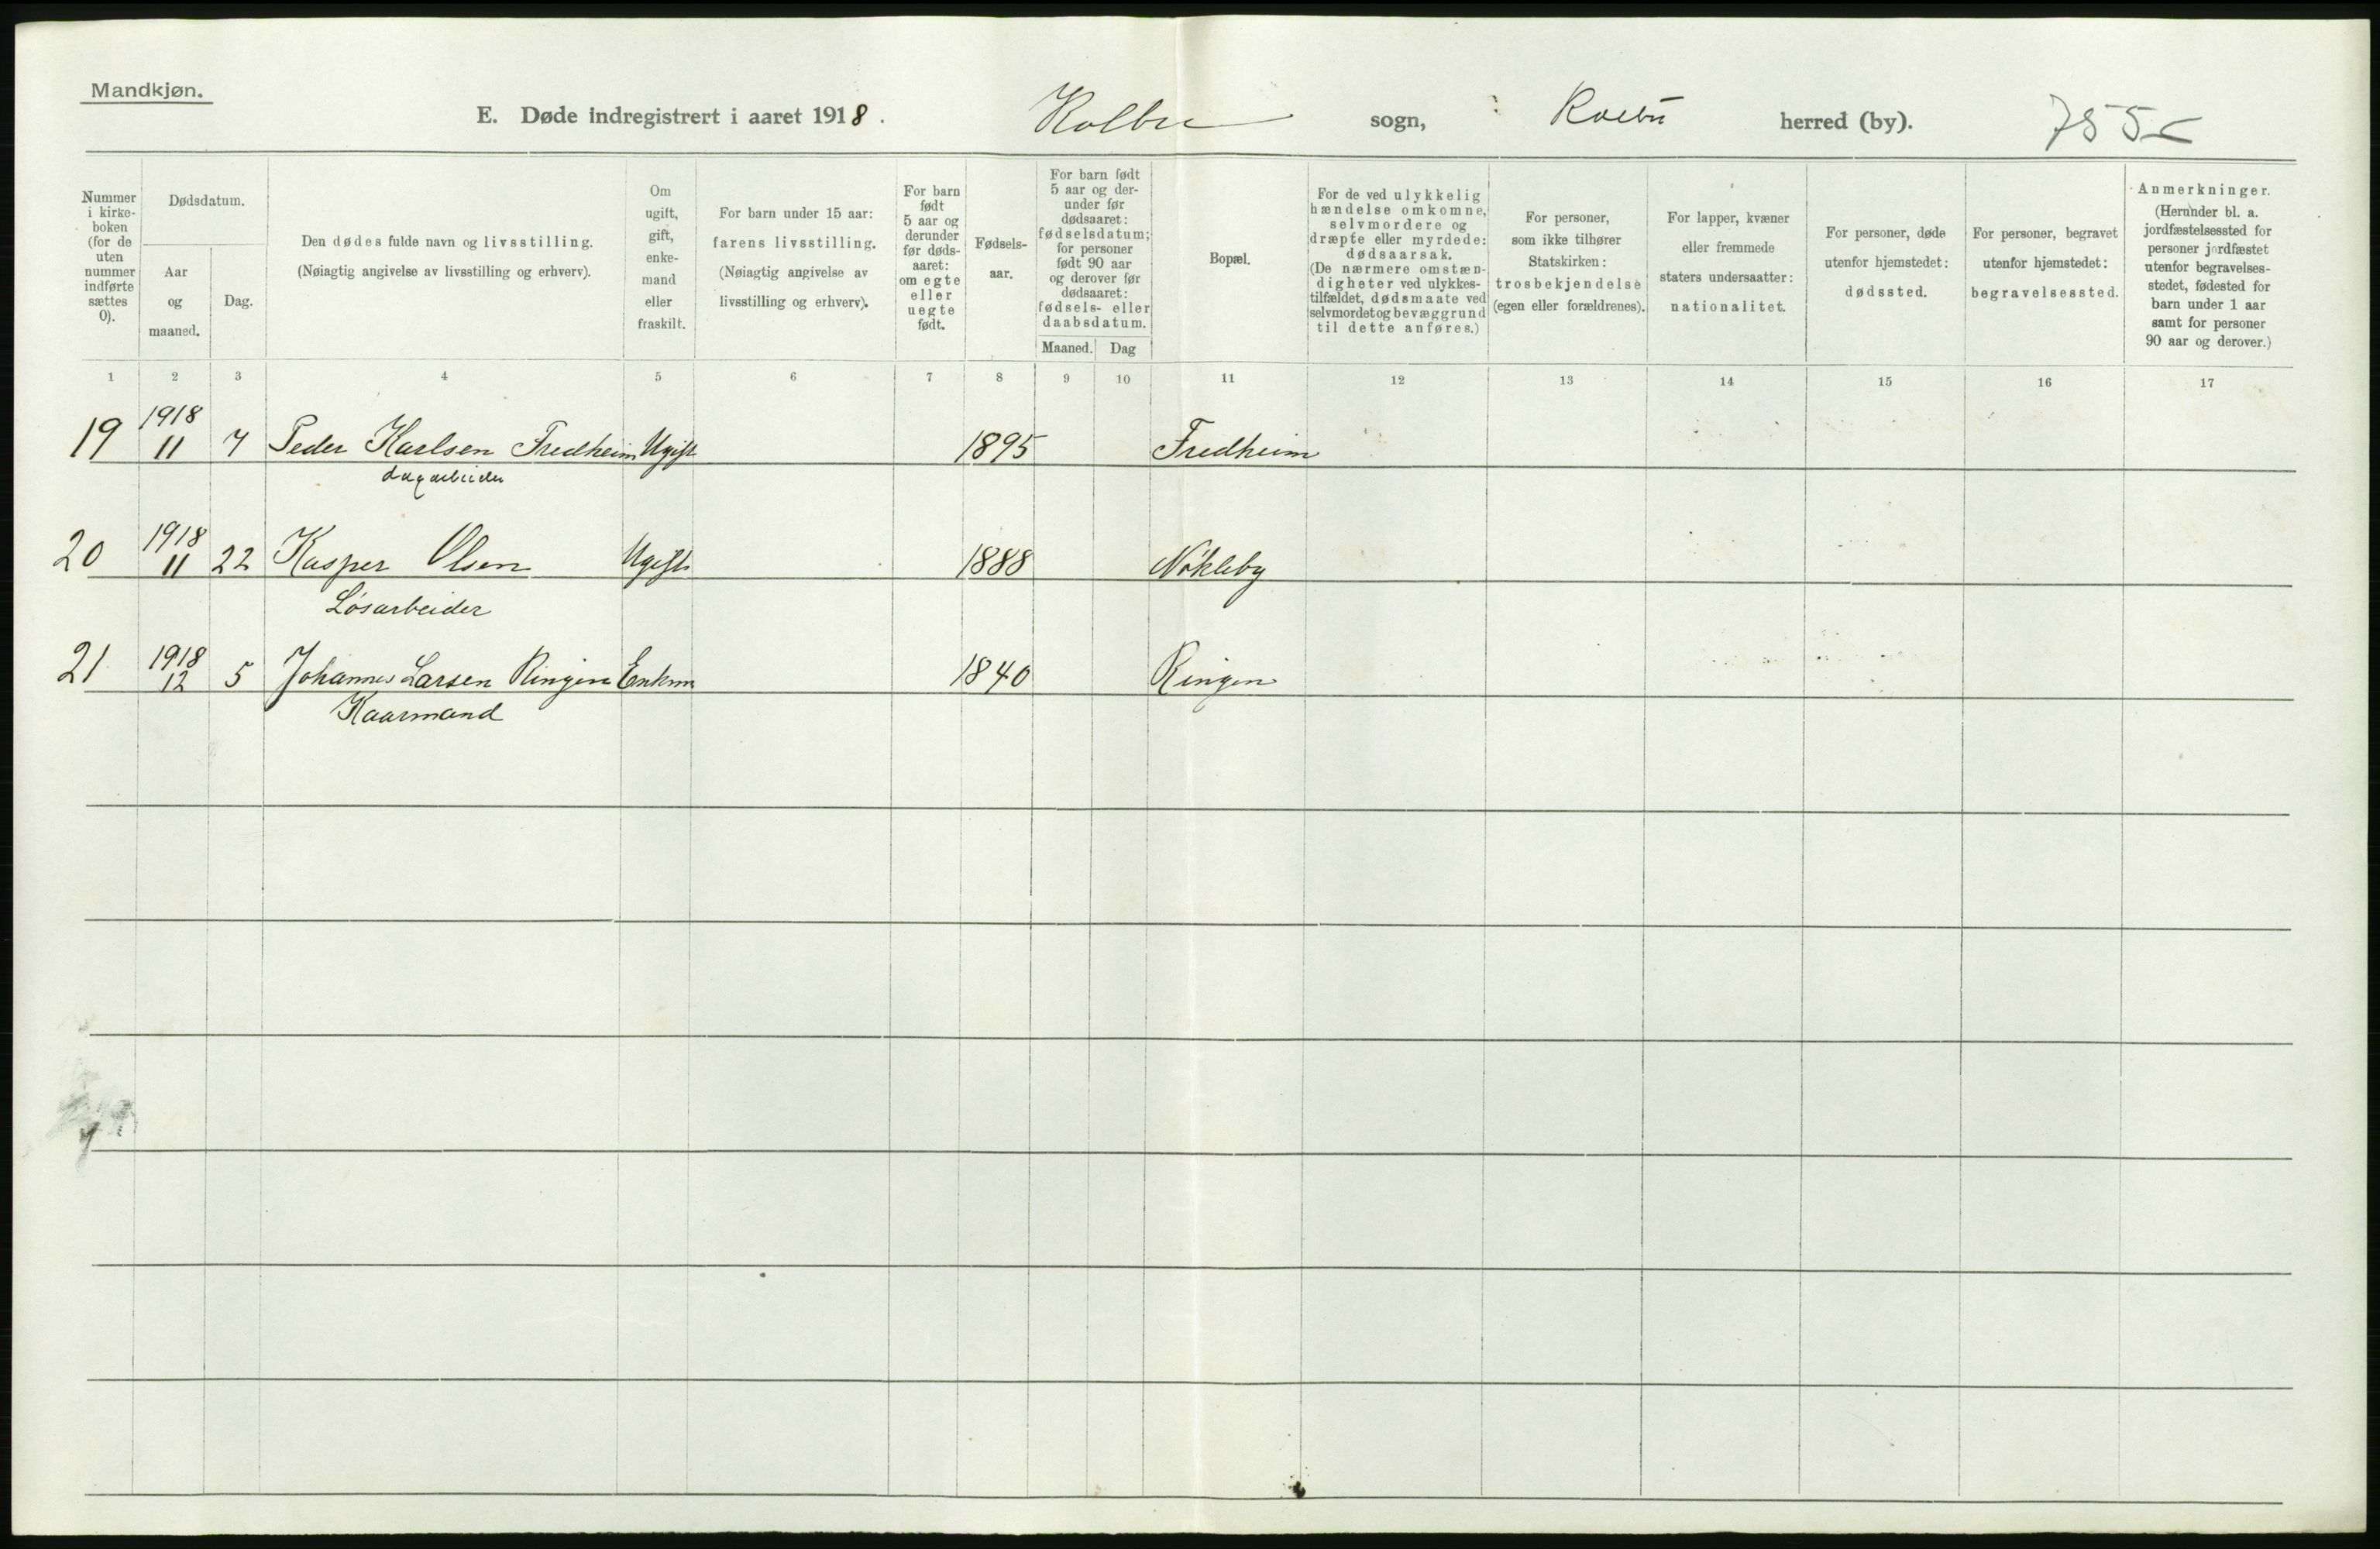 Mandkjøn.
E. Døde indregistrert i aaret 1918. Kolbu sogn, Kolbu herred (by). 755
Nummer i kirke-boken (for de uten nummer indførte sættes 0).
Dødsdatum.
Aar og maaned.
Dag.
Den dødes fulde navn og livsstilling.
(Nøiagtig angivelse av livsstilling og erhverv).
Om ugift, gift, enke-mand eller fraskilt.
For barn under 15 aar:
farens livsstilling.
(Nøiagtig angivelse av
livsstilling og erhverv).
For barn født 5 aar og derunder før døds-aaret: om egte eller uegte født.
Fødsels-aar.
For barn født 5 aar og der-under før dødsaaret: fødselsdatum; for personer født 90 aar og derover før dødsaaret: fødsels- eller daabsdatum.
Maaned. Dag
Bopæl.
For de ved ulykkelig hændelse omkomne, selvmordere og dræpte eller myrdede: dødsaarsak. (De nærmere omstæn-digheter ved ulykkes-tilfældet, dødsmaate ved selvmordet og bevæggrund til dette anføres.)
For personer, som ikke tilhører Statskirken: trosbekjendelse (egen eller forældrenes).
For lapper, kvæner eller fremmede staters undersaatter: nationalitet.
For personer, døde utenfor hjemstedet: dødssted.
For personer, begravet utenfor hjemstedet: begravelsessted.
Anmerkninger. (Herunder bl. a. jordfæstelsessted for personer jordfæstet utenfor begravelses-stedet, fødested for barn under 1 aar samt for personer 90 aar og derover.)
1 2 3 4 5 6 7 8 9 10 11 12 13 14 15 16 17
1918
19 11 7 Peder Karlsen Fredheim Ugift 1895 Fredheim
dagarbeider
1918
20 11 22 Kasper Olsen Ugift 1888 Nökleby
Lösarbeider
1918
21 12 5 Johannes Larsen Ringen Enkm 1840 Ringen
Kaarmand